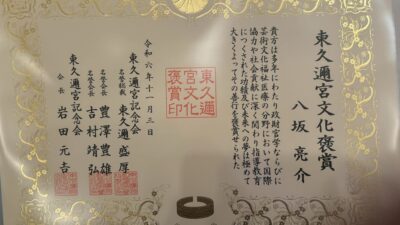 東久邇宮文化褒賞
八坂亮介
貴方は多年にわたり政財官学ならびに
芸術文化福祉医療の分野において国際
協力や社会貢献に深く関わり指導教育
につくされた功績及び未来への夢は極めて
大きくよってその善行を褒賞せられた
東久邇
宮文化
褒賞印
令和六年十一月三日
東久邇宮記念会
名誉総裁 東久邇盛厚
名誉会長 豊澤豊雄
名誉会長 吉村靖弘
東久邇宮記念会
会長 岩田元吉